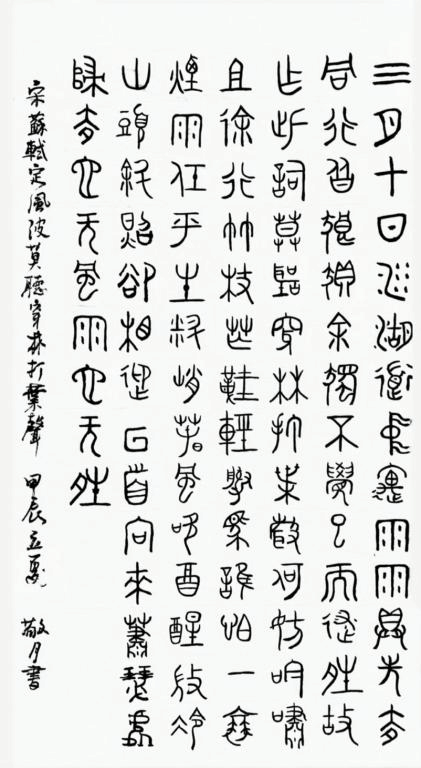 三月七日沙湖道中遇雨雨具先去
同行皆狼狽余獨不覺已而遂晴故
作此詞莫聽穿林打葉聲何妨吟嘯
且徐行竹杖芒鞵輕勝馬誰怕一蓑
煙雨任平生料峭春風吹酒醒微冷
山頭斜照卻相迎回首向來蕭瑟處
歸去也无風雨也无晴
宋蘇軾定風波莫聽穿林打葉聲 甲辰立夏 敬月書